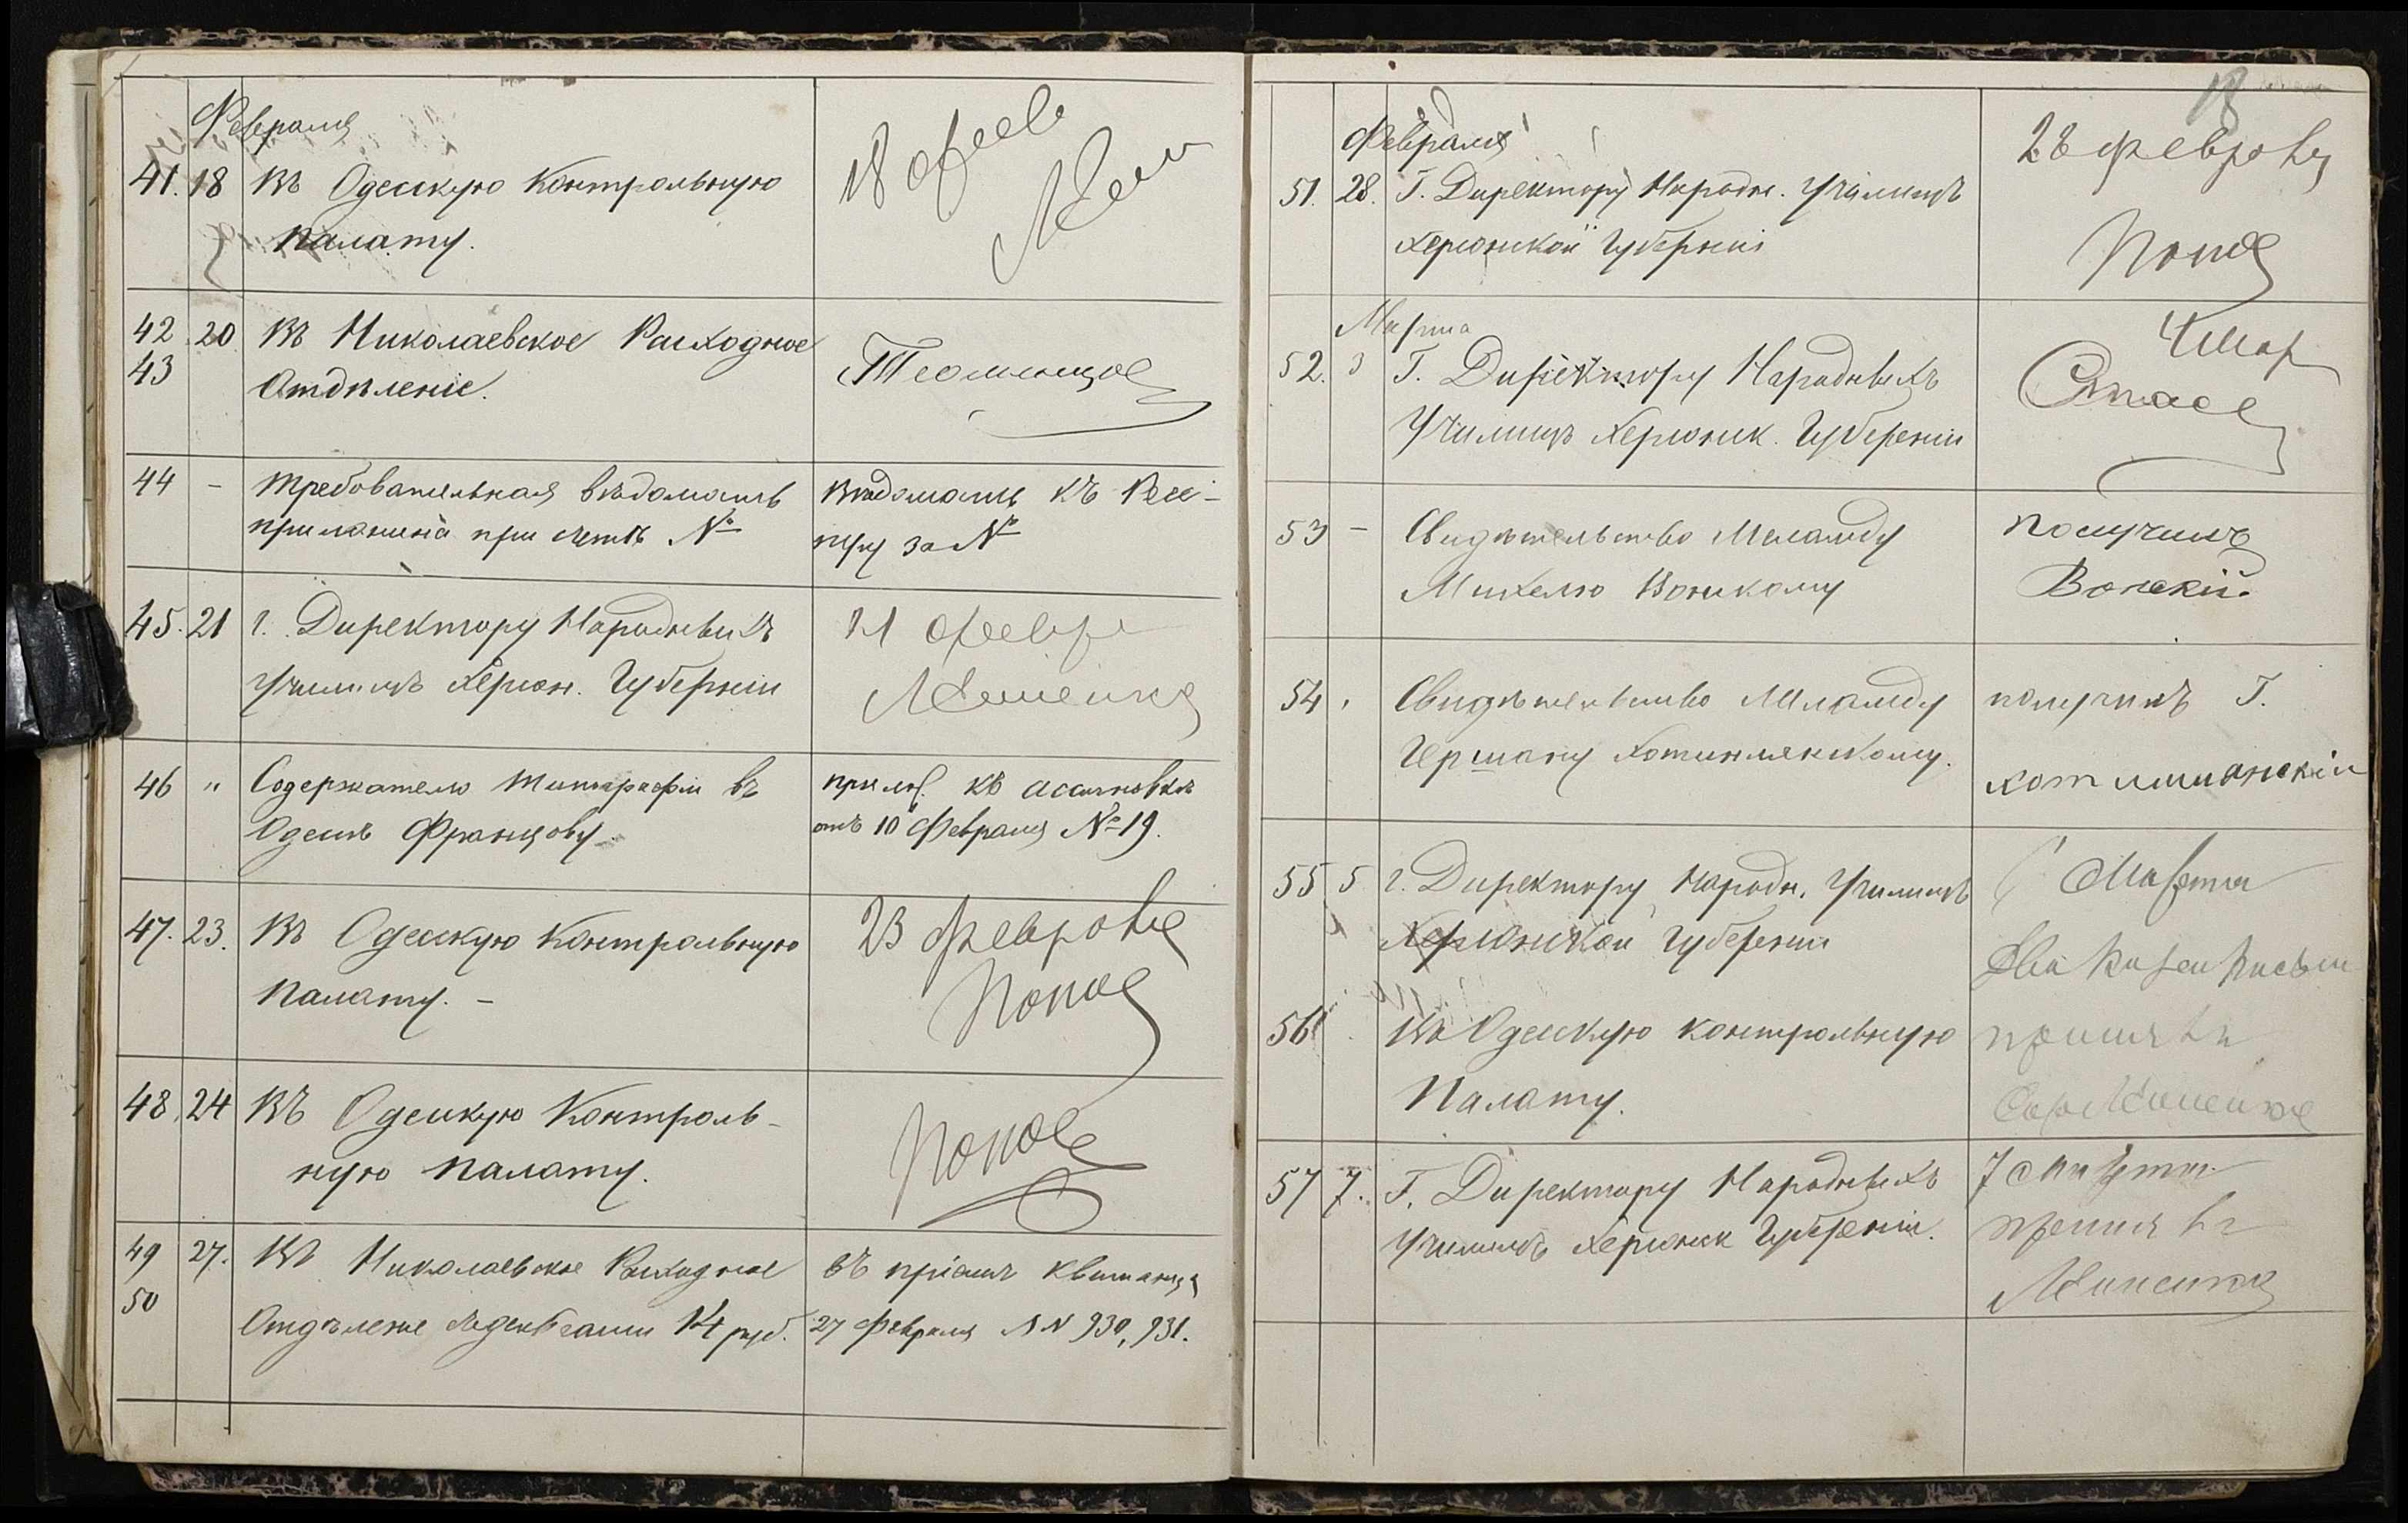 Февраля
41. 18 Въ Одесскую Контрольную
Палату.
18 февр
42 20 Въ Николаевское Расходное
43 Отдѣленіе.
44 - Требовательная вѣдомость
приложена при счетѣ №
Вѣдомость къ Реес-
тру за №
45. 21 г. Директору Народныхъ
Училищъ Херсон. Губерніи
21 февр
46 " Содержателю Типографіи въ
Одессѣ Францову.
прилож. къ ассигновкѣ
отъ 10 Февраля № 19.
47. 23. Въ Одесскую Контрольную
Палату. -
23 февраля
Попов
48. 24 Въ Одесскую Контроль-
ную Палату.
Попов
49 27. Въ Николаевское Расходное
50 Отдѣленіе съ деньгами 14 руб.
въ пріемѣ квитанціи
27 Февраля NN 930, 931.
18
Февраля
51. 28. Г. Директору Народн. Училищъ
Херсонской Губерніи
28 февраля
Попов
Марта
52. 3 Г. Директору Народныхъ
Училищъ Херсонск. Губерніи
4 мар
53 - Свидѣтельство Меламду
Михелю Вонскому
получилъ
Вонскій.
54 , Свидѣтельство Меламду
Гершану Хотимлянскому.
получилъ Г.
Хотимлянскій
55 5 г. Директору Народн. Училищъ
Херсонской Губерніи
Марта
56 Въ Одесскую контрольную
Палату.
принялъ
57 7. Г. Директору Народныхъ
Училищъ Херсонск Губерніи.
7 Марта
принялъ